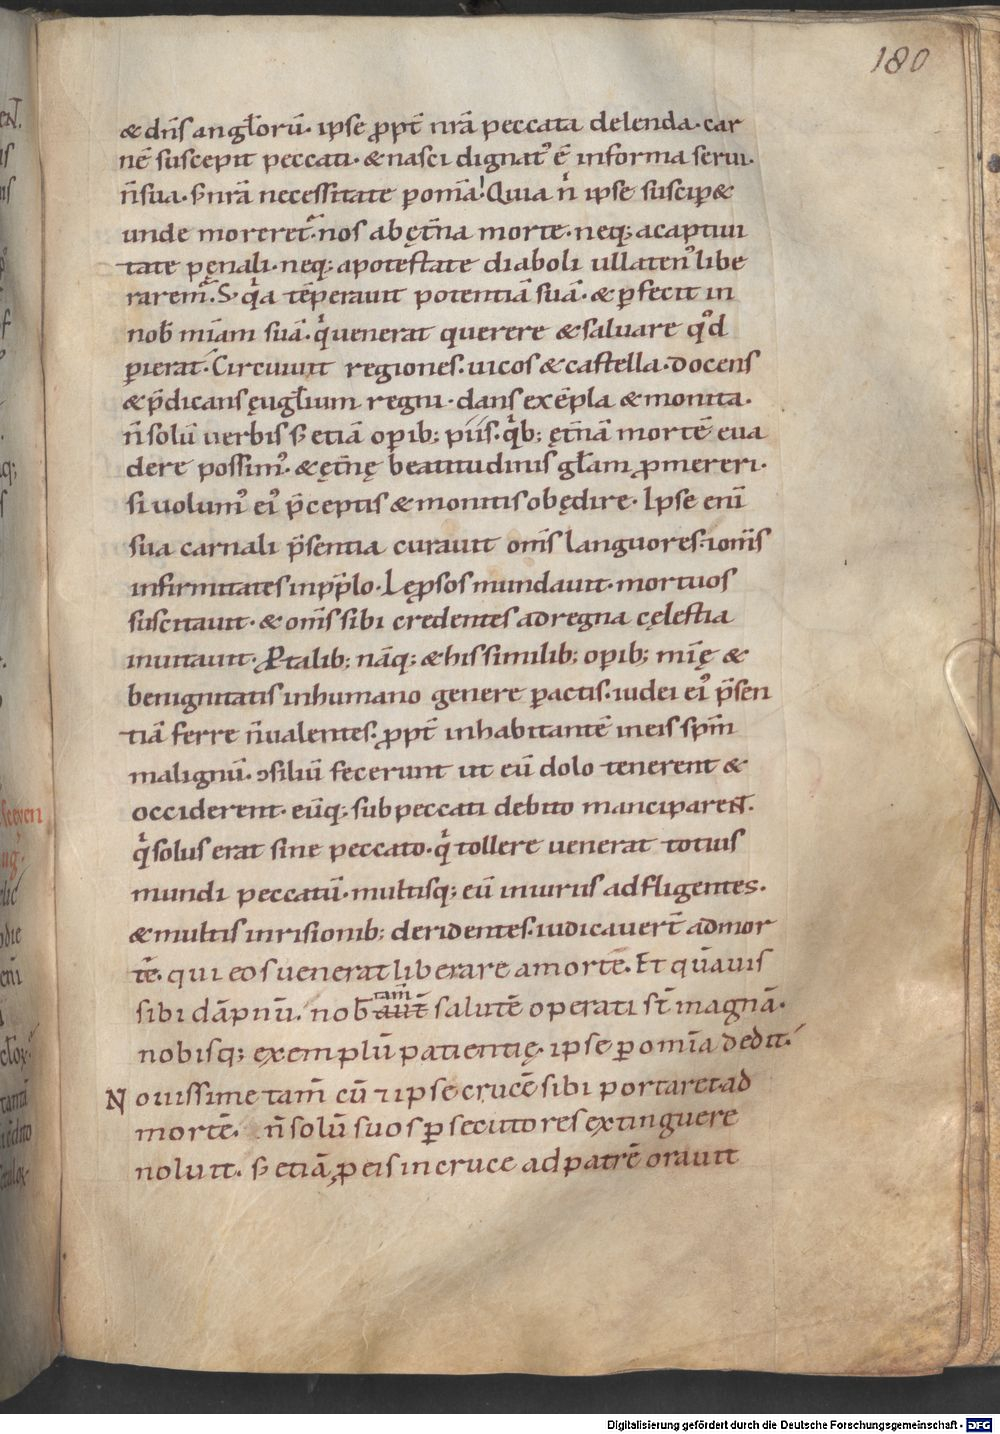 180
& dn̄s angl̄orū. ipse ꝓpt̄ nrā peccata delenda. car
nē suscepit peccati. & nasci dignatꝰ ē informa serui.
n̄ sua. s; nrā necessitate ꝑ om̄ia! Quia nͥ ipse suscip&
unde morereꞇ̃. nos ab ęt̄na morte. neq; acaptiui
tate pęnali. neq; apotestate diaboli ullatenꝰ libe
raremꝰ. S; qͥa tēperauit potentiā suā. & ꝑfecit in
nob̄ miāam suā. qͥ uenerat querere & saluare qͦd
ꝑierat. Circuiuit regiones. uicos & castella. docens
& p̄dicans ęuḡlium regni. dans exēpla & monita.
n̄ solū uerbis s; etiā opib; piis. qͥb; ęt̄nā mortē eua
dere possimꝰ. & ęt̄nę beatitudinis gl̄am ꝓmereri.
si uolumꝰ eiꝰ p̄ceptis & monitis obędire. Ipse enī
sua carnali p̄sentia curauit om̄s languores. ⁊om̄s
infirmitates inpp̄lo. Lęprosos mundauit. mortuos
suscitauit. & om̄s sibi credentes adregna cęlestia
inuitauit. Ꝓ talib; nāq; & his similib; opib; mīę &
benignitatis inhumano genere ꝑactis. iudei eiꝰ p̄sen
tiā ferre n̄ualentes. ꝓpt̄ inhabitantē ineis sp̄m
malignū. ↄsiliū fecerunt ut eū dolo tenerent &
occiderent. eūq; sub peccati debito manciparent.
qͥ solus erat sine peccato. qͥ tollere uenerat totius
mundi peccatū. multisq; eū iniuriis adfligentes.
& multis inrisionib; deridentes. iudicauer̄t admor
tē. qui eos uenerat liberare amorte. Et quāuis
tam̄
sibi dāpnū. nob̄ aut̄ salutē operati st̄ magnā.
nobisq; exemplū patientię. ipse ꝑ om̄ia dedit.
Nouissime tam̄ cū ⁊ ipse crucē sibi portaret ad
mortē. n̄ solū suos ꝑsecutores extinguere
noluit. s; etiā ꝓ eis incruce ad patrē orauit
Digitalisierung gefördert durch die Deutsche Forschungsgemeinschaft - DFG